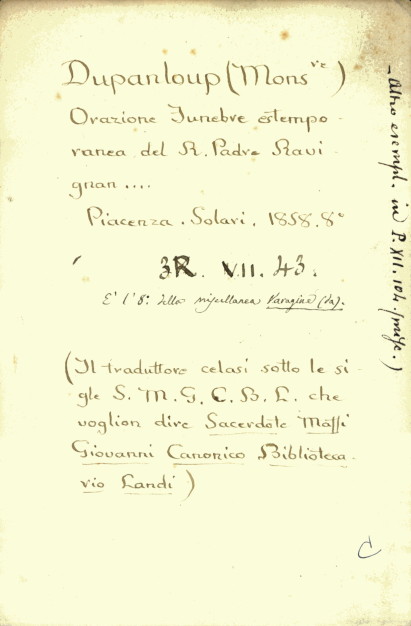 Dupanloup (Mons.re)
Orazione Funebre estempo-
ranea del R. Padre Ravi-
gnan ....
Piacenza. Solari, 1858. 8°
3R. VII. 43.
E' l'8° della miscellanea Varagine (da).
(Il traduttore celasi sotto le si
gle S. M. G. C. B. L. che
voglion dire Sacerdote Massi
Giovanni Canonico Biblioteca-
rio Landi)
- Altro esempl. in P. XII. 104. (misc.)
C